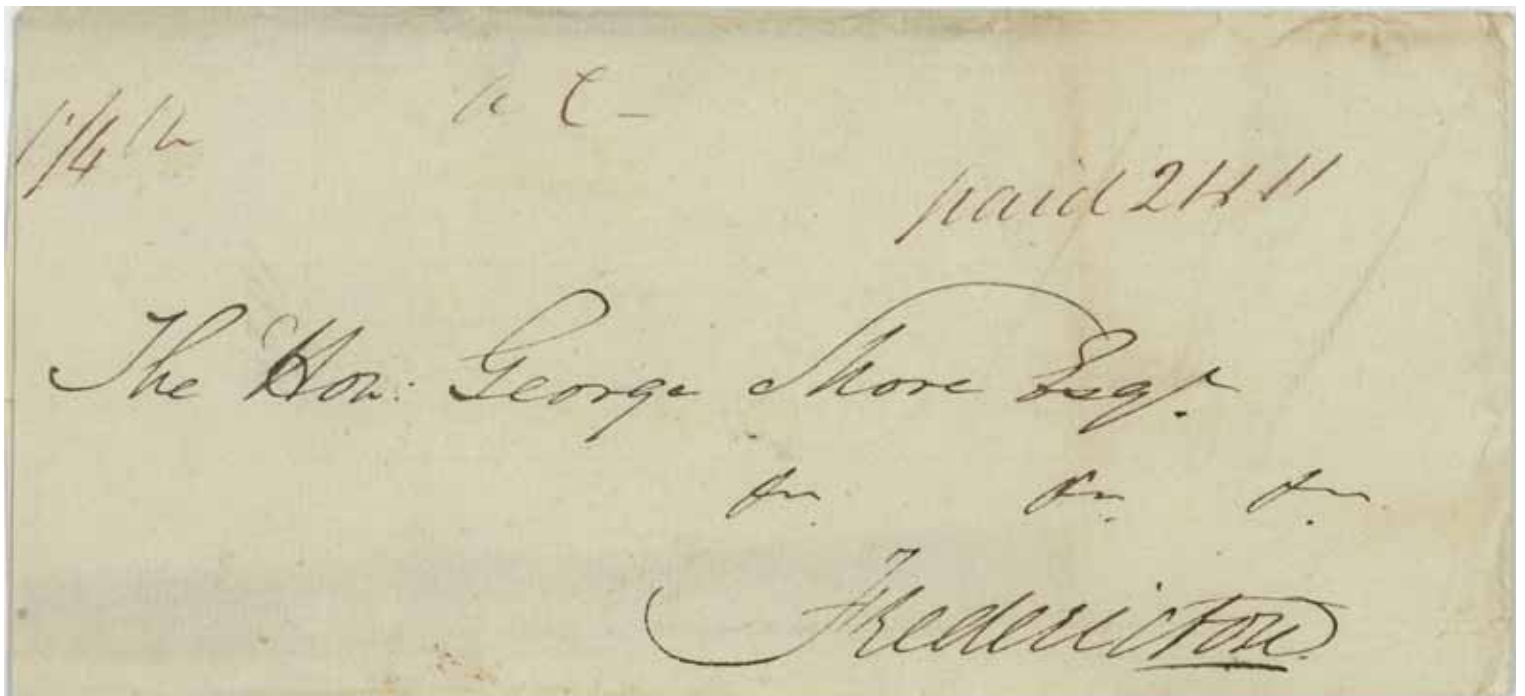 1/4
paid 2/4 11
The Hon: George Shore Esqr.
&c. &c. &c.
Fredericton